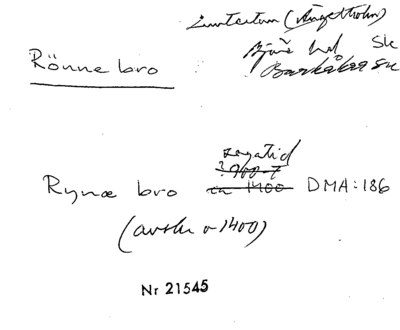 (Ängelholm)
Bjäre hd Sk
Rönne bro
Barkåkra sn
sagatid
Rynæ bro ca 1400 DMA:186
(avskr o 1400)
Nr 21545